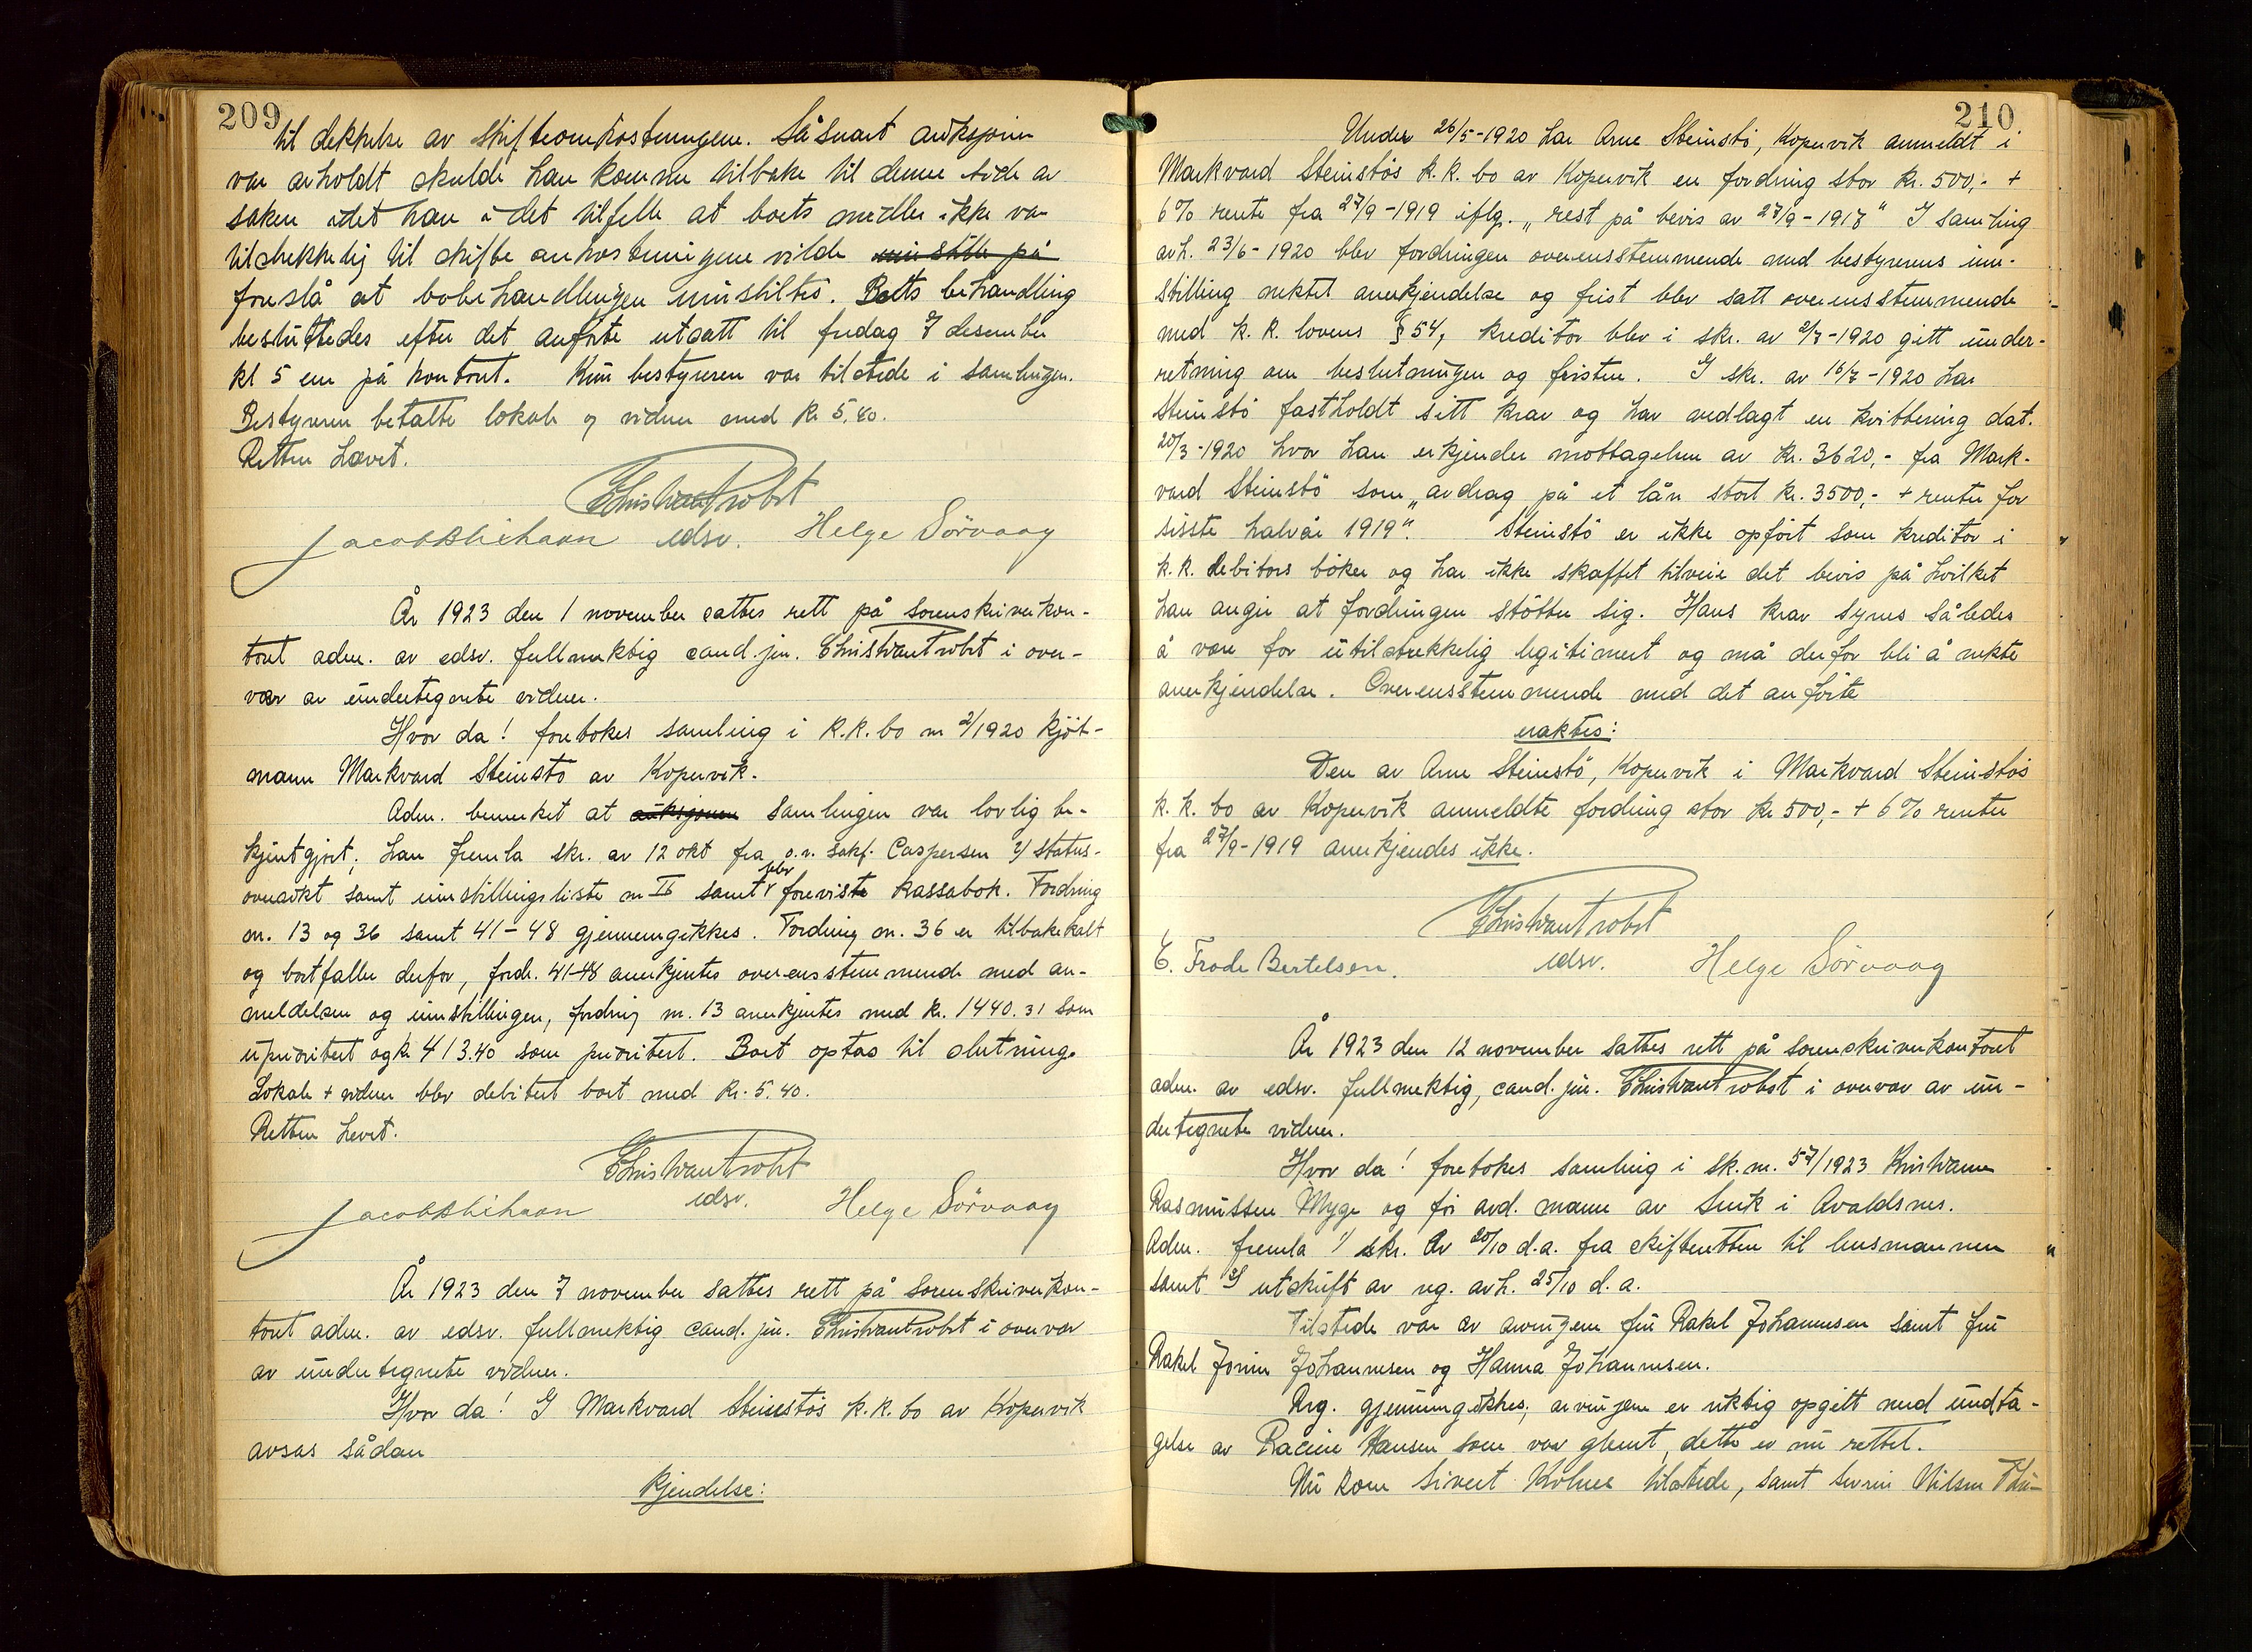 209
til dekkelse av skifteomkostningene. Såsnart auksjonen
var avholdt skulde han komme tilbake til denne side av
saken idet han i det tilfelle at boets midler ikke var
tilstrekkelig til skifte omkostningene vilde innstille på
foreslå at bobehandlingen innstiltes. Boets behandling
besluttedes efter det anførte utsatt til fredag 7 desember
kl 5 em på kontoret. Kun bestyreren var tilstede i samlingen.
Bestyreren betalte lokale og vidner med kr 5.40.
Retten hævet.
Chr. Wantrobst
Jacob edsv. Helge Sörvaag
År 1923 den 1 november sattes rett på sorenskriverkon-
toret adm. av edsv. fullmektig cand. jur. Chr. Wantrobst i over-
vær av undertegnete vidner.
Hvor da! foretokes samling i k.k. bo nr 2/1920 kjöt-
mann Markvard Steinstö av Kopervik.
Adm. bemerket at auksjonen samlingen var lovlig be-
kjentgjort; han fremla skr. av 12 okt fra o.r. sakf. Caspersen 2) status-
oversikt samt innstillingsliste nr II samt selv foreviste kassabok. Fordring
nr. 13 og 36 samt 41-48 gjennemgikkes. Fordring nr. 36 er tilbakekalt
og bortfaller derfor, fordr. 41-48 anerkjentes overensstemmende med an-
meldelsen og innstillingen, fordring nr. 13 anerkjentes med kr. 1440.31 som
uprioritert og kr 413.40 som prioritert. Boet optas til slutning.
Lokale + vidner blev debitert boet med kr. 5.40.
Retten hevet.
Chr. Wantrobst
Jacob edsv. Helge Sörvaag
År 1923 den 7 november sattes rett på sorenskriverkon-
toret adm. av edsv. fullmektig cand. jur. Chr. Wantrobst i overvær
av undertegnete vidner.
Hvor da! I Markvard Steinstös k.k. bo av Kopervik
avsas sådan
kjendelse:
210
Under 26/5-1920 har Arne Steinstö, Kopervik anmeldt i
Markvard Steinstös k.k. bo av Kopervik en fordring stor kr. 500,- +
6% rente fra 27/9-1919 iflg. „rest på bevis av 27/9-1918" I samling
avh. 23/6-1920 blev fordringen overensstemmende med bestyrerens inn-
stilling nektet anerkjendelse og frist blev satt overensstemmende
med k.k. lovens § 54, kreditor blev i skr. av 2/7-1920 gitt under-
retning om beslutningen og fristen. I skr. av 16/7-1920 har
Steinstö fastholdt sitt krav og har vedlagt en kvittering dat.
20/3-1920 hvor han erkjender mottagelsen av kr. 3620,- fra Mark-
vard Steinstö som „avdrag på et lån stort kr. 3500,- + renter for
sisste halvår 1919". Steinstö er ikke opfört som kreditor i
k.k. debitors böker og har ikke skaffet tilveie det bevis på hvilket
han angir at fordringen stötter sig. Hans krav synes således
å være for utilstrekkelig legitimert og må derfor bli å nekte
anerkjendelse. Overensstemmende med det anförte
eraktes:
Den av Arne Steinstö, Kopervik i Markvard Steinstös
k.k. bo av Kopervik anmeldte fordring stor kr 500,- + 6% renter
fra 27/9-1919 anerkjendes ikke.
Chr. Wantrobst
E. Frode Bertelsen. edsv. Helge Sörvaag
År 1923 den 12 november sattes rett på sorenskriverkontoret
adm. av edsv. fullmektig, cand. jur. Chr. Wantrobst i overvær av un-
dertegnete vidner.
Hvor da! foretokes samling i sk. nr. 57/1923 Kristiane
Rasmussen Myge og för avd. mann av Snik i Avaldsnes.
Adm. fremla 1) skr. av 20/10 d.a. fra skifteretten til lensmannen
samt 2) utskrift av reg. avh. 25/10 d.a.
Tilstede var av arvingene fru Rakel Johannesen samt fru
Rakel Johannesen og Hanna Johannesen.
Reg. gjennemgikkes; arvingene er riktig opgitt med undta-
gelse av Racine Hansen som var glemt, dette er nu rettet.
Nu kom Sivert Kolnes tilstede, samt Severin Nilsen